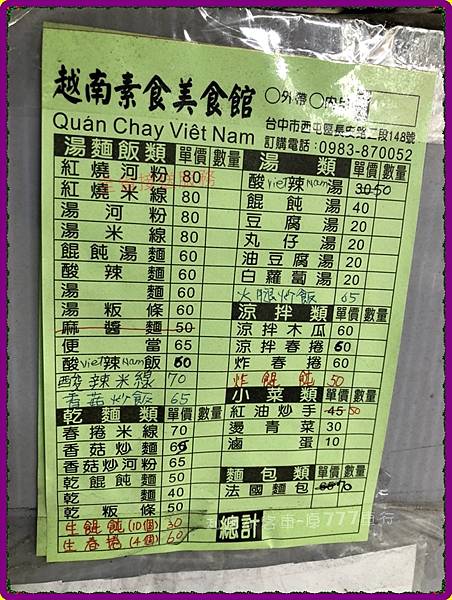 越南素食美食館 ○外帶○內用
Quán Chay Việt Nam
台中市西屯區長安路二段148號
訂購電話:0983-870052
湯麵飯類 單價 數量
紅燒河粉 80
紅燒米線 80
湯河粉 60
湯米線 60
餛飩湯麵 60
酸辣麵 60
湯麵 60
湯粄條 60
麻醬麵 50
便當 65
酸viet辣Nam飯 60
酸辣米線 70
香菇炒飯 65
乾麵類 單價 數量
春捲米線 70
香菇炒麵 65
香菇炒河粉 65
乾餛飩麵 50
乾麵 40
乾粄條 50
生餛飩(10個) 30
生春捲(4個) 60
湯類 單價 數量
酸viet辣Nam湯 30 50
餛飩湯 40
豆腐湯 20
丸仔湯 20
油豆腐湯 20
白蘿蔔湯 20
火腿炒飯 65
涼拌類 單價 數量
涼拌木瓜 60
涼拌春捲 60
炸春捲 60
炸餛飩 50
小菜類 單價 數量
紅油炒手 45 50
燙青菜 30
滷蛋 10
麵包類 單價 數量
法國麵包 70
總計